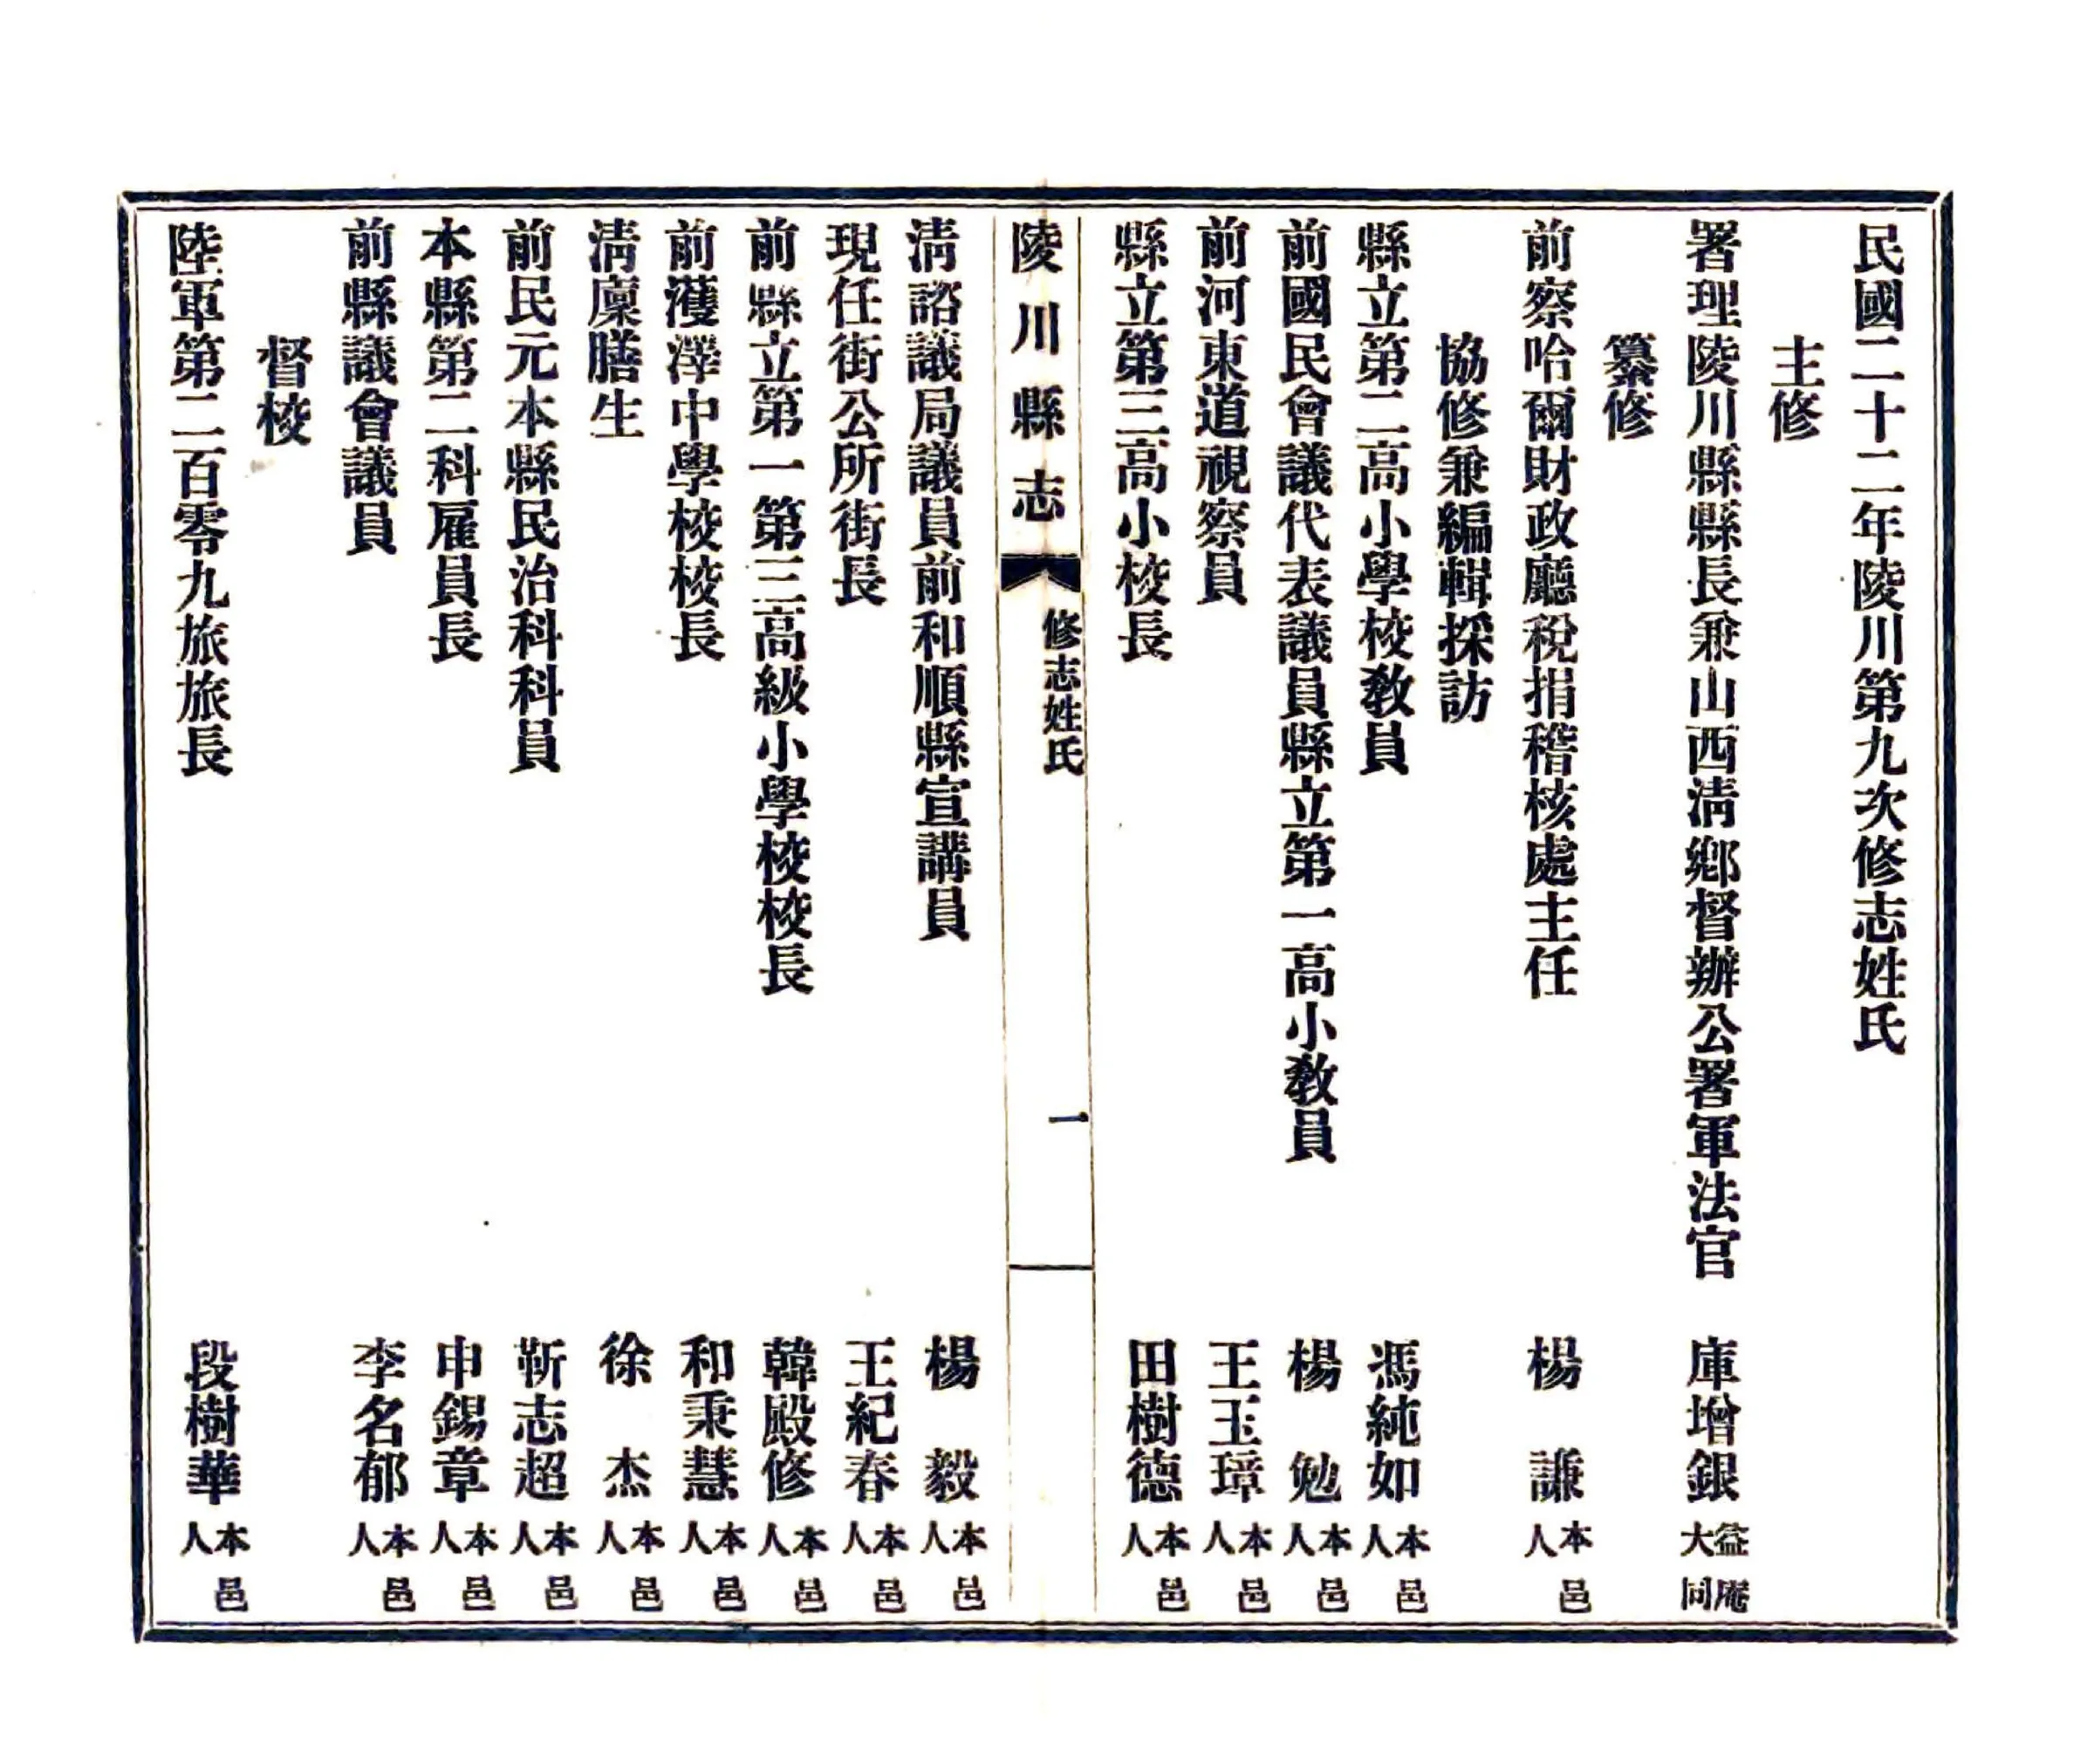 民國二十二年陵川第九次修志姓氏
主修
署理陵川縣縣長兼山西清鄉督辦公署軍法官　庫增銀　益庵　大同
纂修
前察哈爾財政廳稅捐稽核處主任　楊　謙　本邑人
協修兼編輯採訪
縣立第二高小學校教員　馮純如　本邑人
前國民會議代表議員縣立第一高小教員　楊　勉　本邑人
前河東道視察員　王玉璋　本邑人
縣立第三高小校長　田樹德　本邑人
陵川縣志　修志姓氏　一
清諮議局議員前和順縣宣講員　楊　毅　本邑人
現任街公所街長　王紀春　本邑人
前縣立第一第三高級小學校校長　韓殿修　本邑人
前濩澤中學校校長　和秉慧　本邑人
清廩膳生　徐　杰　本邑人
前民元本縣民治科科員　靳志超　本邑人
本縣第二科雇員長　申錫章　本邑人
前縣議會議員　李名郁　本邑人
督校
陸軍第二百零九旅旅長　段樹華　本邑人